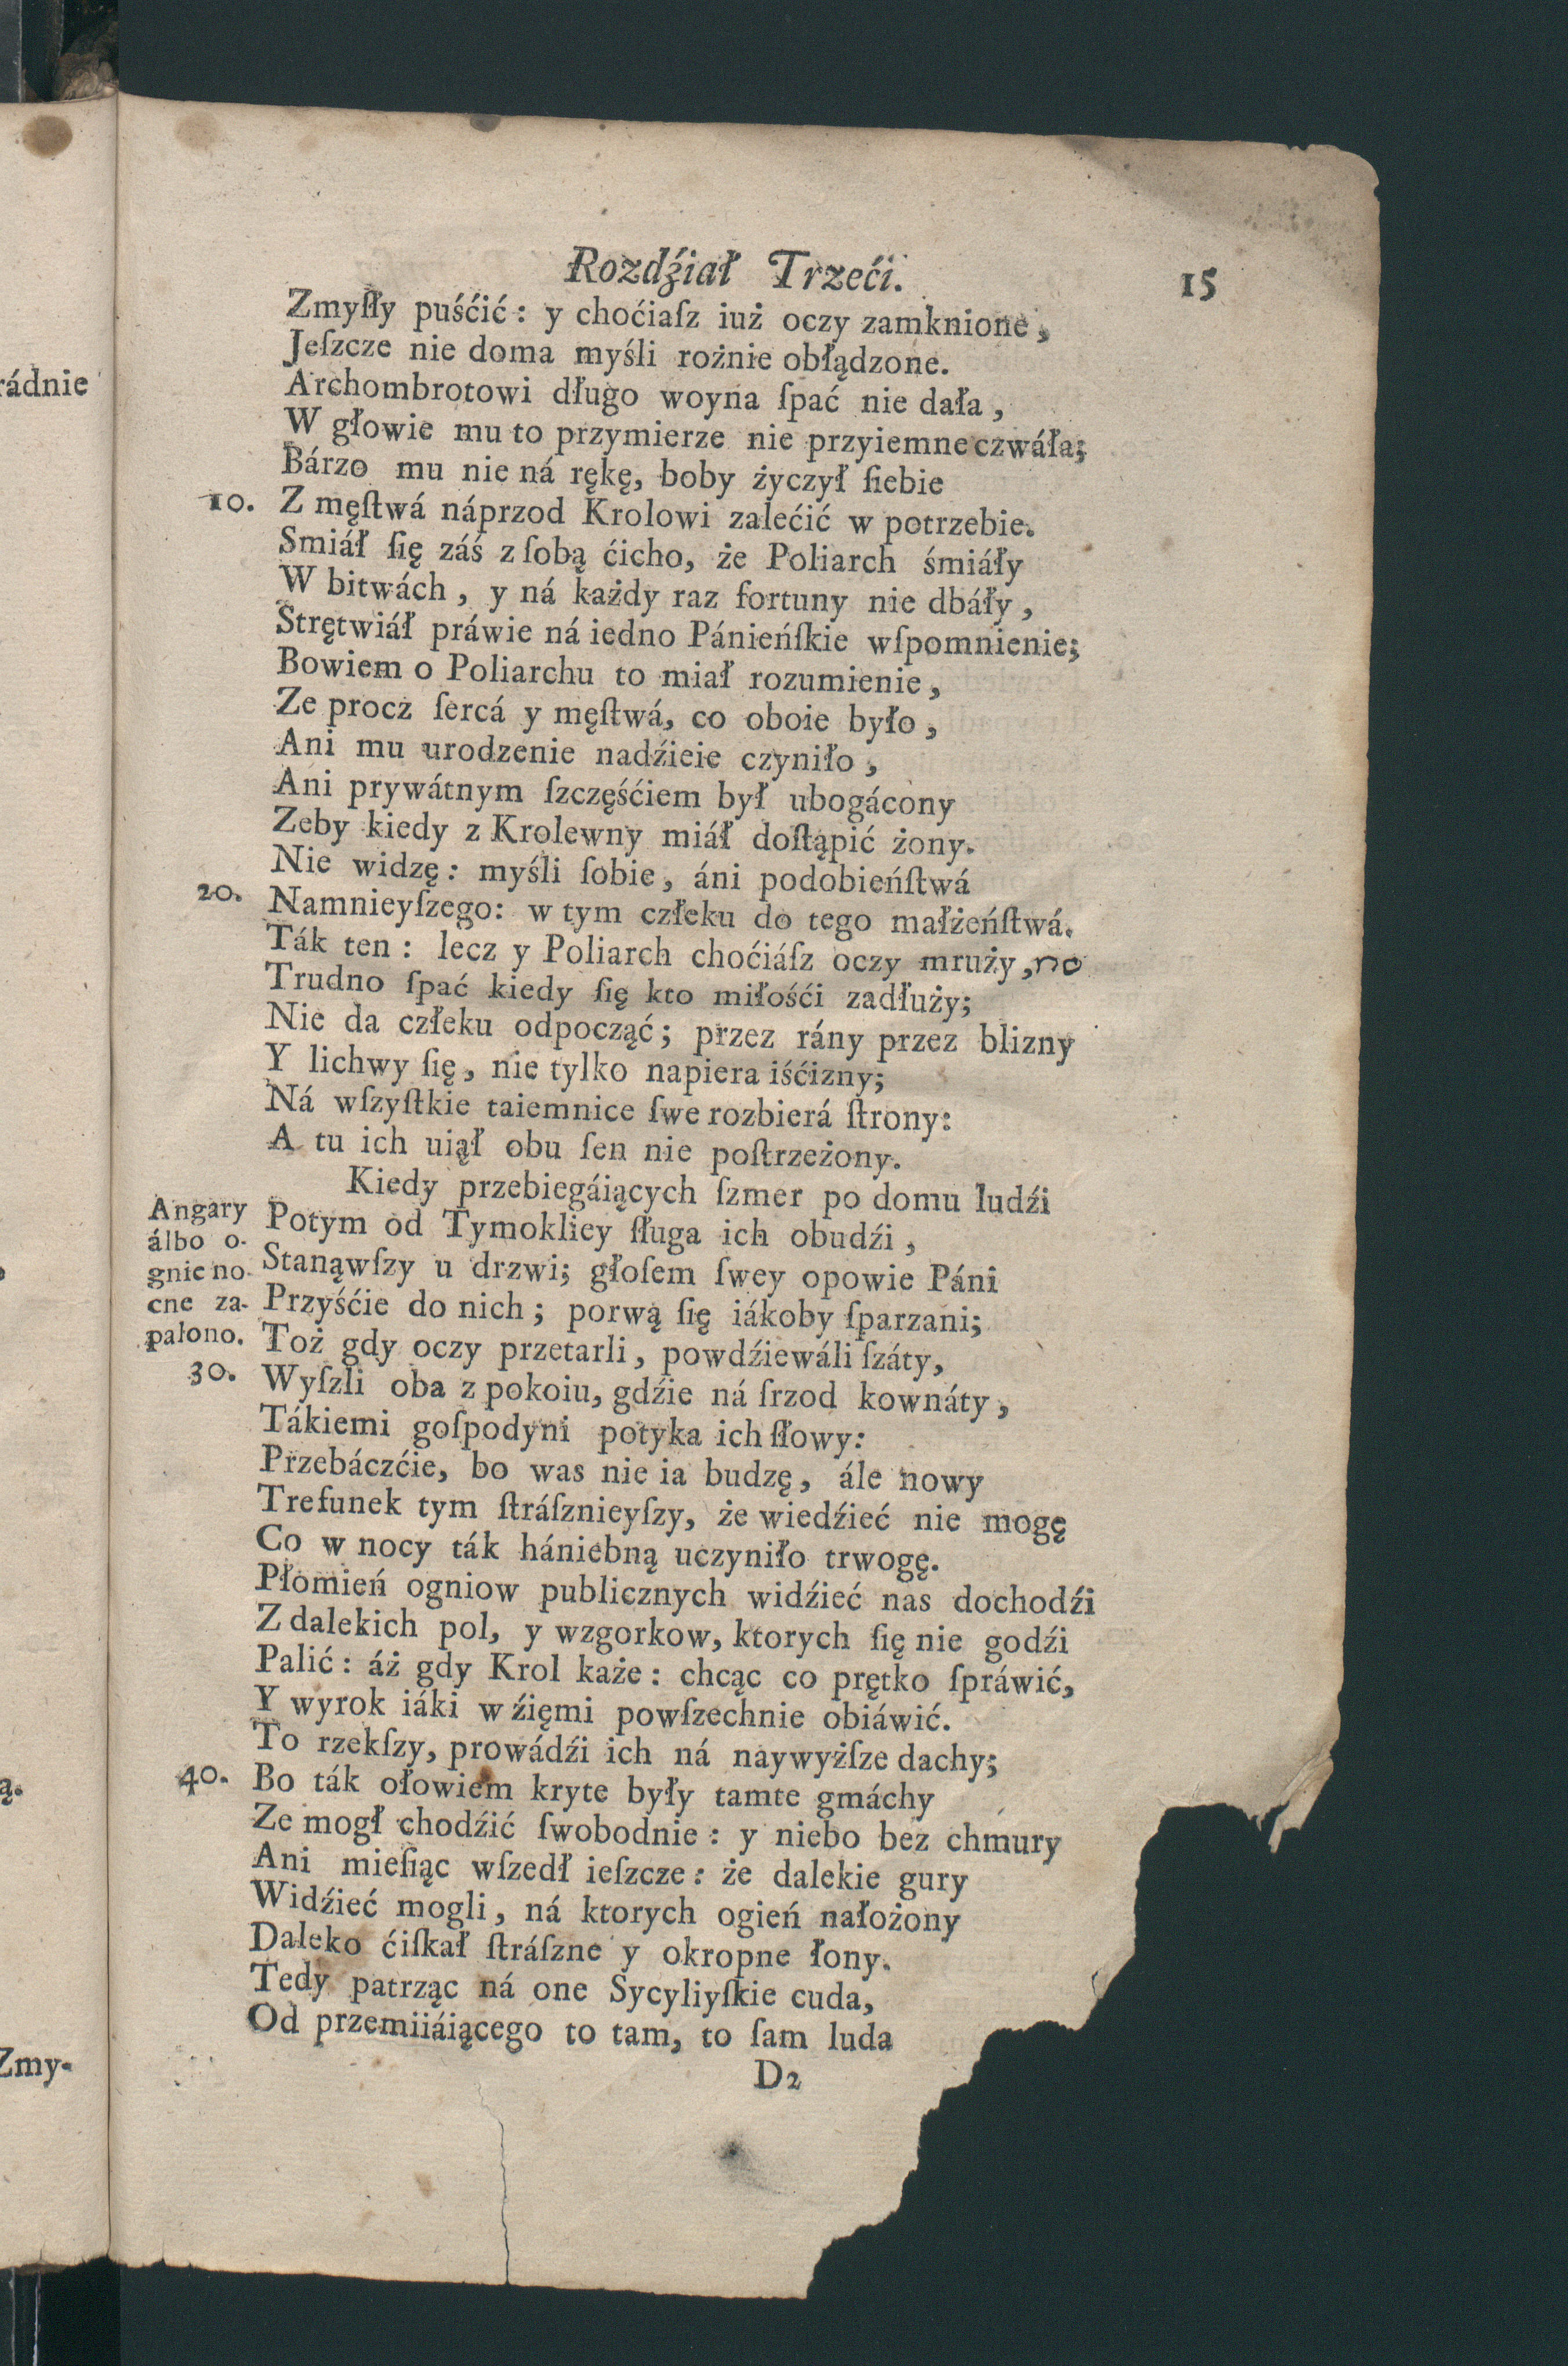 Rozdźiał Trzeći. 15
Zmyſły puśćić: y choćiaſz iuż oczy zamknione,
Jeſzcze nie doma myśli rożnie obłądzone.
Archombrotowi długo woyna ſpać nie dała,
W głowie mu to przymierze nie przyiemne czwáła;
Bárzo mu nie ná rękę, boby życzył ſiebie
10. Z męſtwá náprzod Krolowi zalećić w potrzebie.
Smiáł ſię záś z ſobą ćicho, że Poliarch śmiáły
W bitwách, y ná każdy raz fortuny nie dbáły,
Strętwiáł práwie ná iedno Pánieńſkie wſpomnienie;
Bowiem o Poliarchu to miał rozumienie,
Ze procz ſercá y męſtwá, co oboie było,
Ani mu urodzenie nadźieie czyniło,
Ani prywátnym ſzczęśćiem był ubogácony
Zeby kiedy z Krolewny miáł doſtąpić żony.
Nie widzę: myśli ſobie, áni podobieńſtwá
20. Namnieyſzego: w tym człeku do tego małżeńſtwá.
Ták ten: lecz y Poliarch choćiáſz oczy mruży, no
Trudno ſpać kiedy ſię kto miłośći zadłuży;
Nie da człeku odpocząć; przez rány przez blizny
Y lichwy ſię, nie tylko napiera iśćizny;
Ná wſzyſtkie taiemnice ſwe rozbierá ſtrony:
A tu ich uiął obu ſen nie poſtrzeżony.
Kiedy przebiegáiących ſzmer po domu ludźi
Potym od Tymokliey ſługa ich obudźi,
Stanąwſzy u drzwi; głoſem ſwey opowie Páni
Przyśćie do nich; porwą ſię iákoby ſparzani;
Toż gdy oczy przetarli, powdźiewáli ſzáty,
Angary
álbo o-
gnie no-
cne za-
palono.
30. Wyſzli oba z pokoiu, gdźie ná ſrzod kownáty,
Tákiemi goſpodyni potyka ich ſłowy:
Przebáczćie, bo was nie ia budzę, ále nowy
Trefunek tym ſtráſznieyſzy, że wiedźieć nie mogę
Co w nocy ták hániebną uczyniło trwogę.
Płomień ogniow publicznych widźieć nas dochodźi
Z dalekich pol, y wzgorkow, ktorych ſię nie godźi
Palić: áż gdy Krol każe: chcąc co prętko ſpráwić,
Y wyrok iáki w źięmi powſzechnie obiáwić.
To rzekſzy, prowádźi ich ná naywyżſze dachy;
40. Bo ták ołowiem kryte były tamte gmáchy
Ze mogł chodźić ſwobodnie: y niebo bez chmury
Ani mieſiąc wſzedł ieſzcze: że dalekie gury
Widźieć mogli, ná ktorych ogień nałożony
Daleko ćiſkał ſtráſzne y okropne łony.
Tedy patrząc ná one Sycyliyſkie cuda,
Od przemiiáiącego to tam, to ſam luda
D2
rádnie
ą.
Zmy-